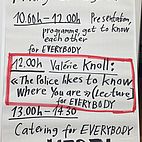 10.00h - 12.00h Presentation,
programme, get to know
each other
for EVERYBODY
12.00h Valérie Knoll:
«The Police likes to know
Where You are» (lecture)
for EVERYBODY
13.00h - 14.30
Catering for EVERYBODY